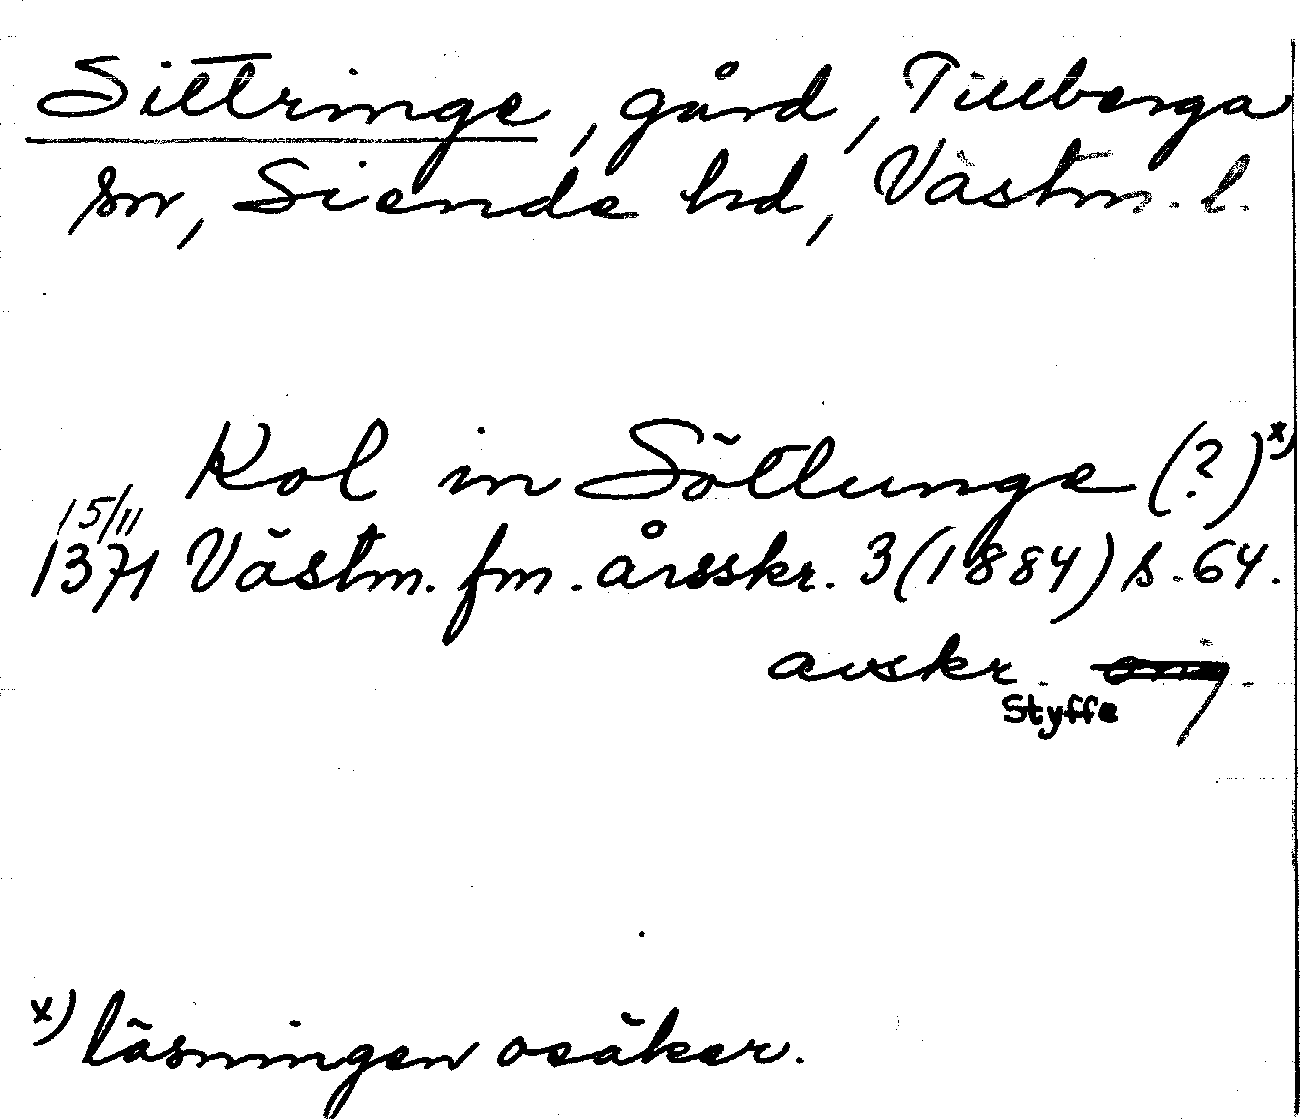 Sittringe, gård, Tillberga
sn, Siende hd, Västm. l.
Kol in Sötlunge (?) x)
15/11
1371 Västm. fm. årsskr. 3 (1884) s. 64.
avskr.
Styffe
x) läsningen osäker.